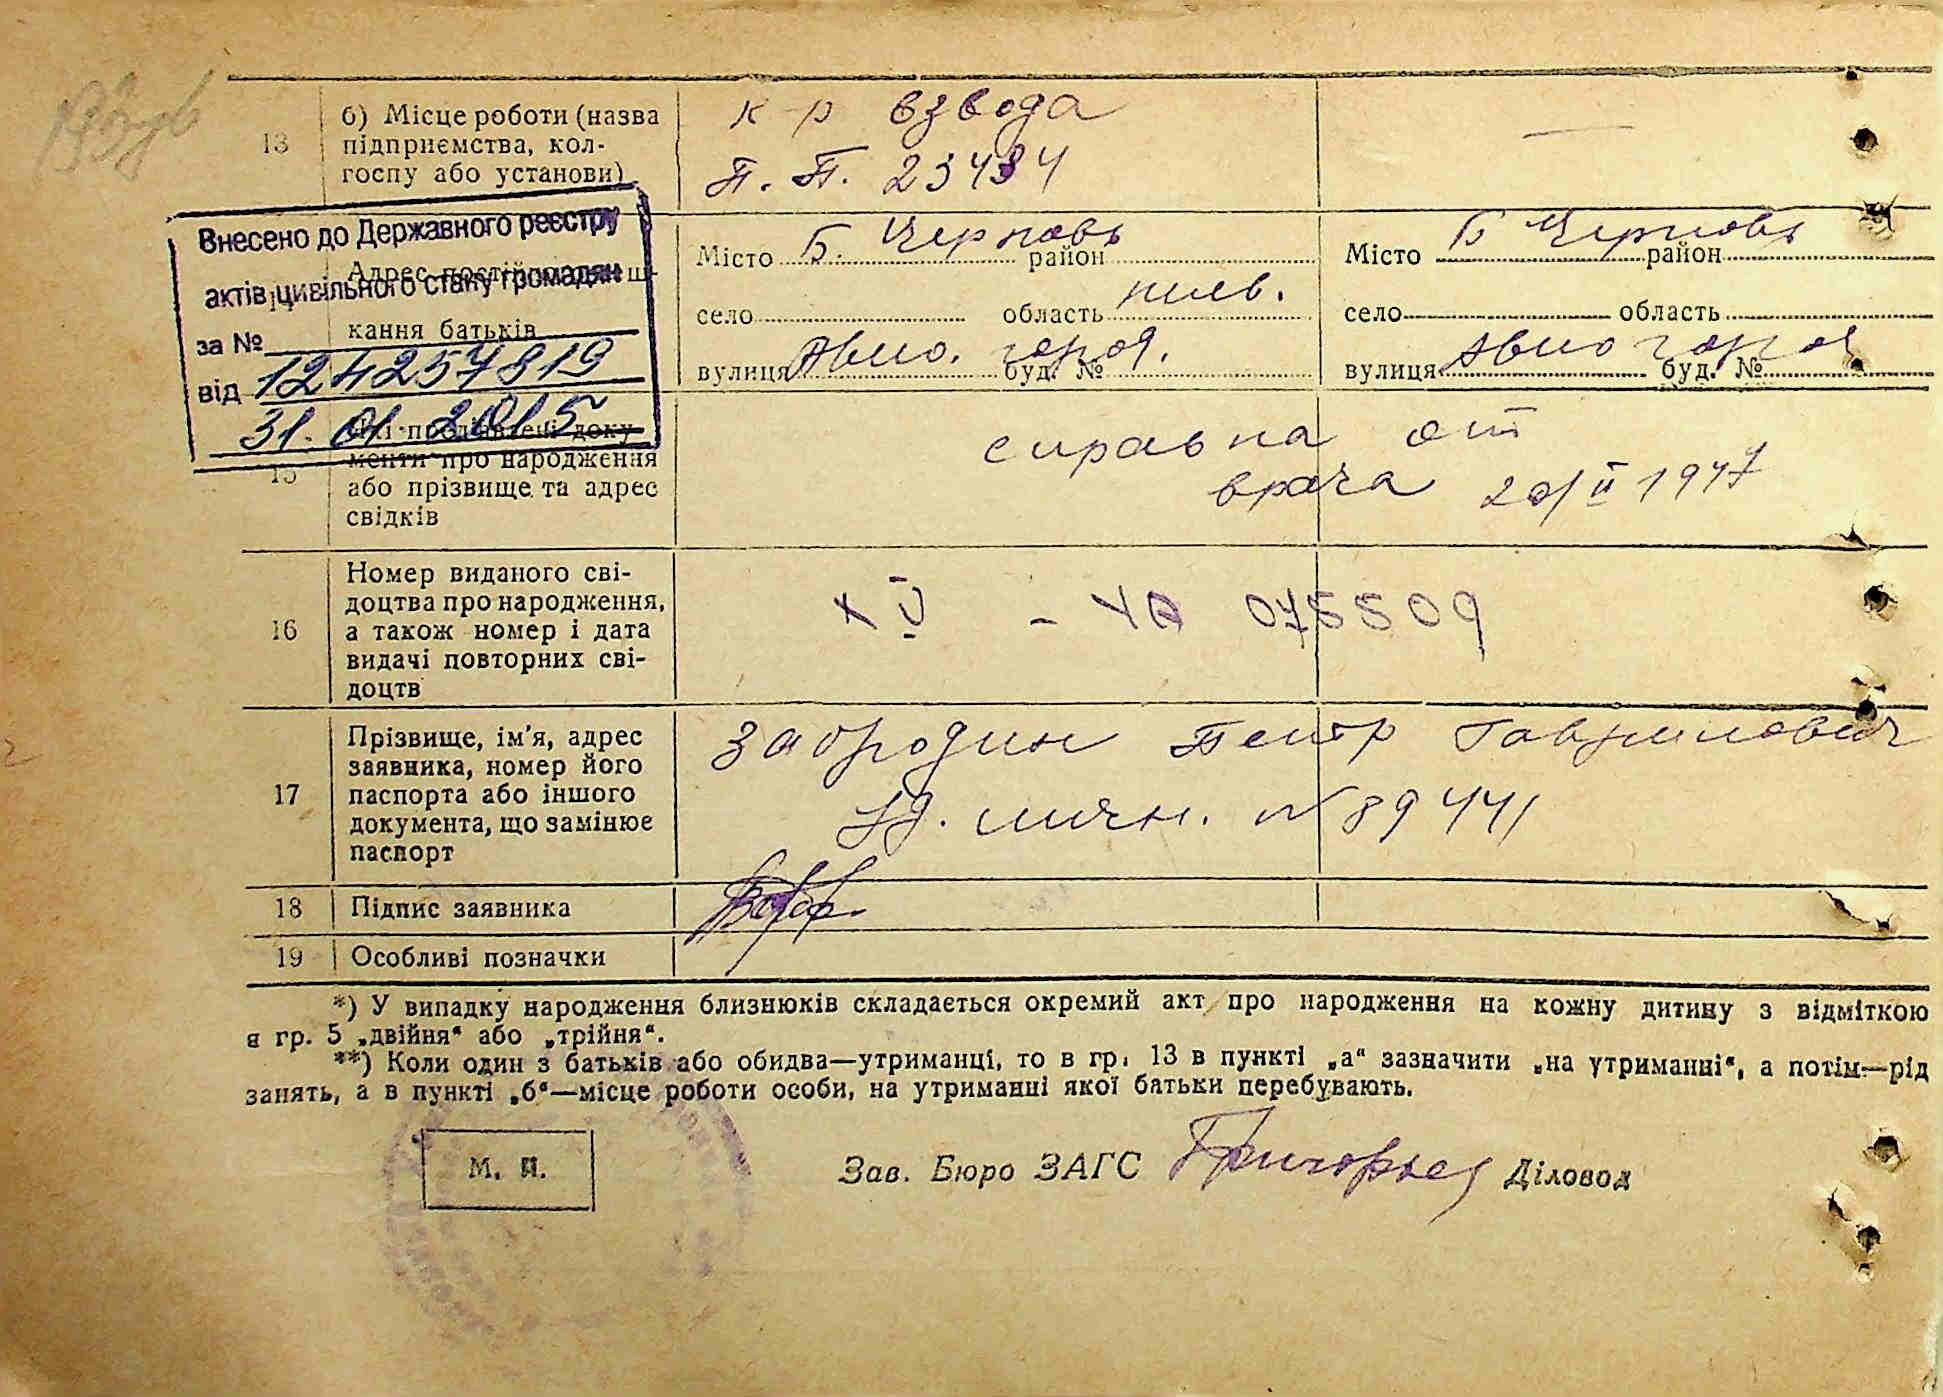 13
б) Місце роботи (назва
підприємства, кол-
госпу або установи)
к-р взвода
П.П. 23434
—
Внесено до Державного реєстру
актів цивільного стану громадян
за № 124257819
від 31.01.2015
кання батьків
Місто Б. Церковь район
село область киев.
вулиця Авио. город. буд. №
Місто Б Церковь район
село область
вулиця Авио город буд. №
15
менти про народження
або прізвище та адрес
свідків
справка от
врача 20/II 1947
16
Номер виданого сві-
доцтва про народження,
а також номер і дата
видачі повторних сві-
доцтв
XV - ЧА 075509
17
Прізвище, ім'я, адрес
заявника, номер його
паспорта або іншого
документа, що замінює
паспорт
Забродин Петр Гаврилович
уд. личн. № 89441
18 Підпис заявника
19 Особливі позначки
*) У випадку народження близнюків складається окремий акт про народження на кожну дитину з відміткою
в гр. 5 „двійня“ або „трійня“.
**) Коли один з батьків або обидва—утриманці, то в гр. 13 в пункті „а“ зазначити „на утриманні“, а потім—рід
занять, а в пункті „б“—місце роботи особи, на утриманні якої батьки перебувають.
М. П.
Зав. Бюро ЗАГС Григорьев Діловод